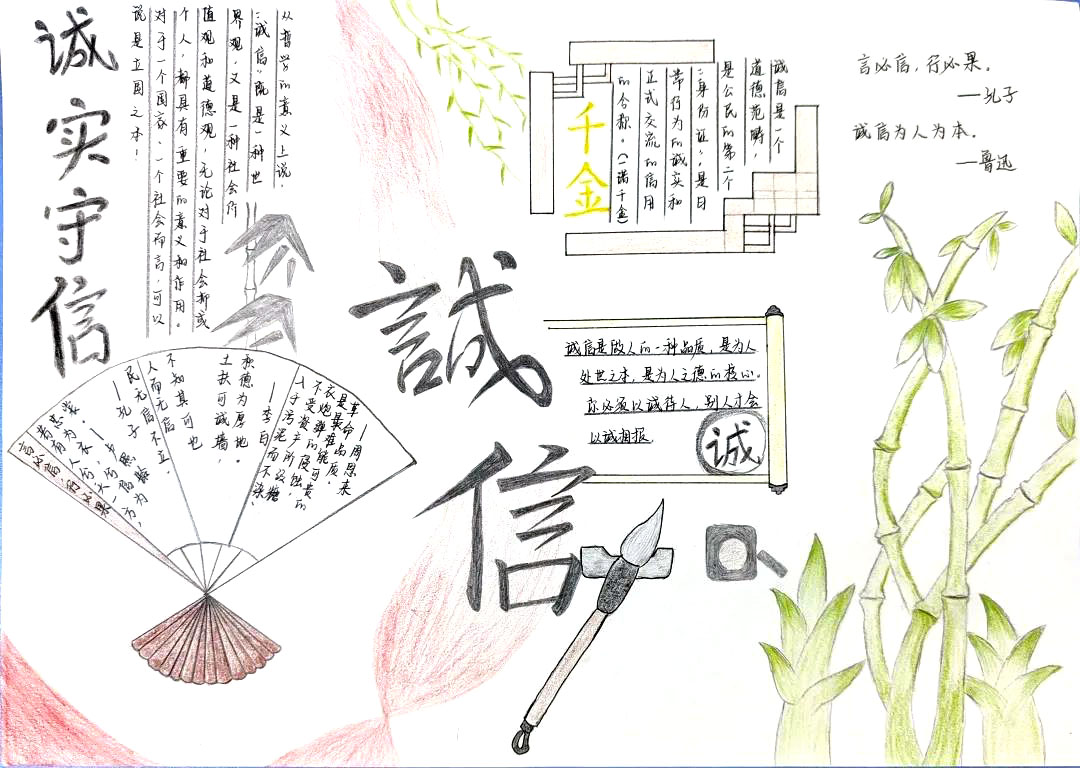 诚实守信
从哲学的意义上说，
“诚信”既是一种世
界观，又是一种社会价
值观和道德观，无论对于社会抑或
个人，都具有重要的意义和作用。
对于一个国家、一个社会而言，可以
说是立国之本！
诚信是一个
道德范畴，
是公民的第二个
“身份证”，是日
常行为的诚实和
正式交流的信用
的合称。（一诺千金）
千金
言必信，行必果。
—孔子
誠信为人为本.
—鲁迅
誠信
诚信是做人的一种品质，是为人
处世之本，是为人之德的核心。
你必须以诚待人，别人才会
以诚相报.
诚
—周恩来
—李白
积德为厚地。
土扶可诚墙，
不知其可也
人而无信
民无信不立.
—孔子
言必信，行必果